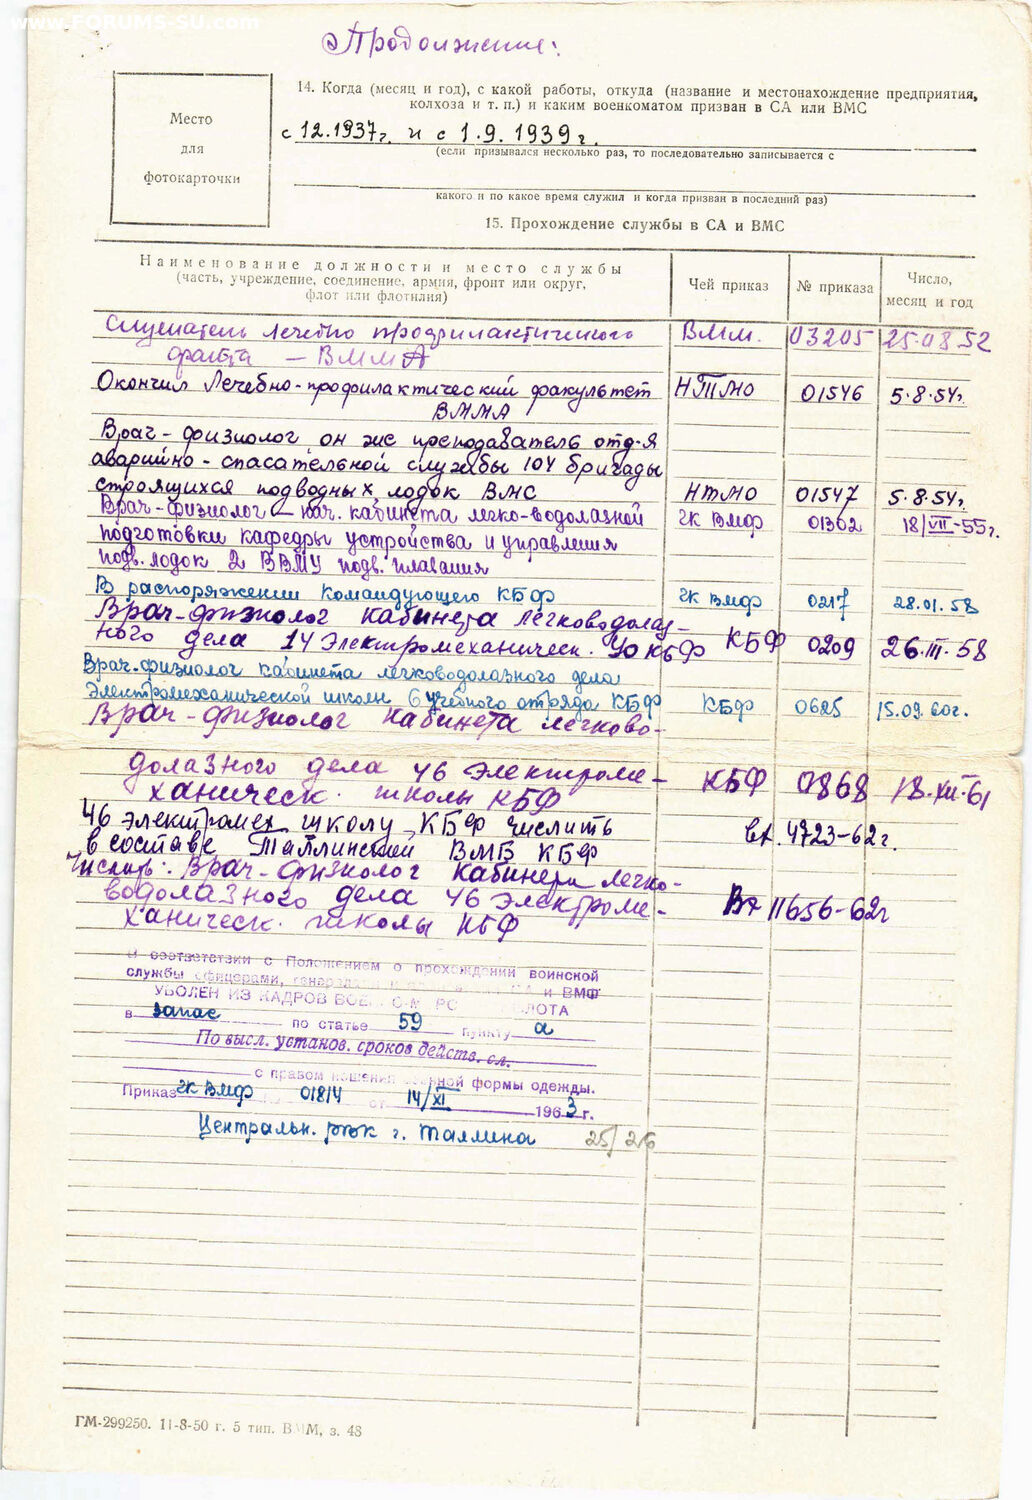 www.FORUMS-SU.com
Продолжение:
Место
для
фотокарточки
14. Когда (месяц и год), с какой работы, откуда (название и местонахождение предприятия,
колхоза и т. п.) и каким военкоматом призван в СА или ВМС
с 12.1937г. и с 1.9.1939г.
(если призывался несколько раз, то последовательно записывается с
какого и по какое время служил и когда призван в последний раз)
15. Прохождение службы в СА и ВМС
Наименование должности и место службы
(часть, учреждение, соединение, армия, фронт или округ,
флот или флотилия)
Чей приказ
№ приказа
Число,
месяц и год
Слушатель лечебно профилактического ВММ. 03205 25.08.52
факта — ВММА
Окончил Лечебно-профилактический факультет НТМО 01546 5.8.54г.
ВММА
Врач-физиолог он же преподаватель отд-я
аварийно-спасательной службы 104 бригады
строящихся подводных лодок ВМС НТМО 01547 5.8.54г.
Врач-физиолог – нач. кабинета легко-водолазной ГК ВМФ 01302 18/VII-55г.
подготовки кафедры устройства и управления
подв. лодок 2 ВВМУ подв. плавания
В распоряжении Командующего КБФ ГК ВМФ 0217 28.01.58
Врач-физиолог кабинета легководолаз-
ного дела 14 Электромеханическ. УО КБФ КБФ 0209 26.III.58
Врач-физиолог кабинета легководолазного дела
Электромеханической школы 6 учебного отряда КБФ КБФ 0625 15.09.60г.
Врач-физиолог кабинета легково-
долазного дела 46 Электроме- КБФ 0868 18.XII.61
ханическ. школы КБФ
46 электромех школу КБФ числить вх. 4723-62г.
в составе Таллинской ВМБ КБФ
Числить: Врач-физиолог Кабинета легко-
водолазного дела 46 Электроме- Вх 11656-62г
ханическ. школы КБФ
В соответствии с Положением о прохождении воинской
службы офицерами, генералами и СА и ВМФ
УВОЛЕН ИЗ КАДРОВ ФЛОТА
в запас по статье 59 пункту а
По высл. установ. сроков действ. сл.
с правом ношения военной формы одежды.
Приказ ГК ВМФ 01814 от 14/XI 1963 г.
Центральн. рвк г. Таллина 25/26
ГМ-299250. 11-8-50 г. 5 тип. ВММ, з. 48